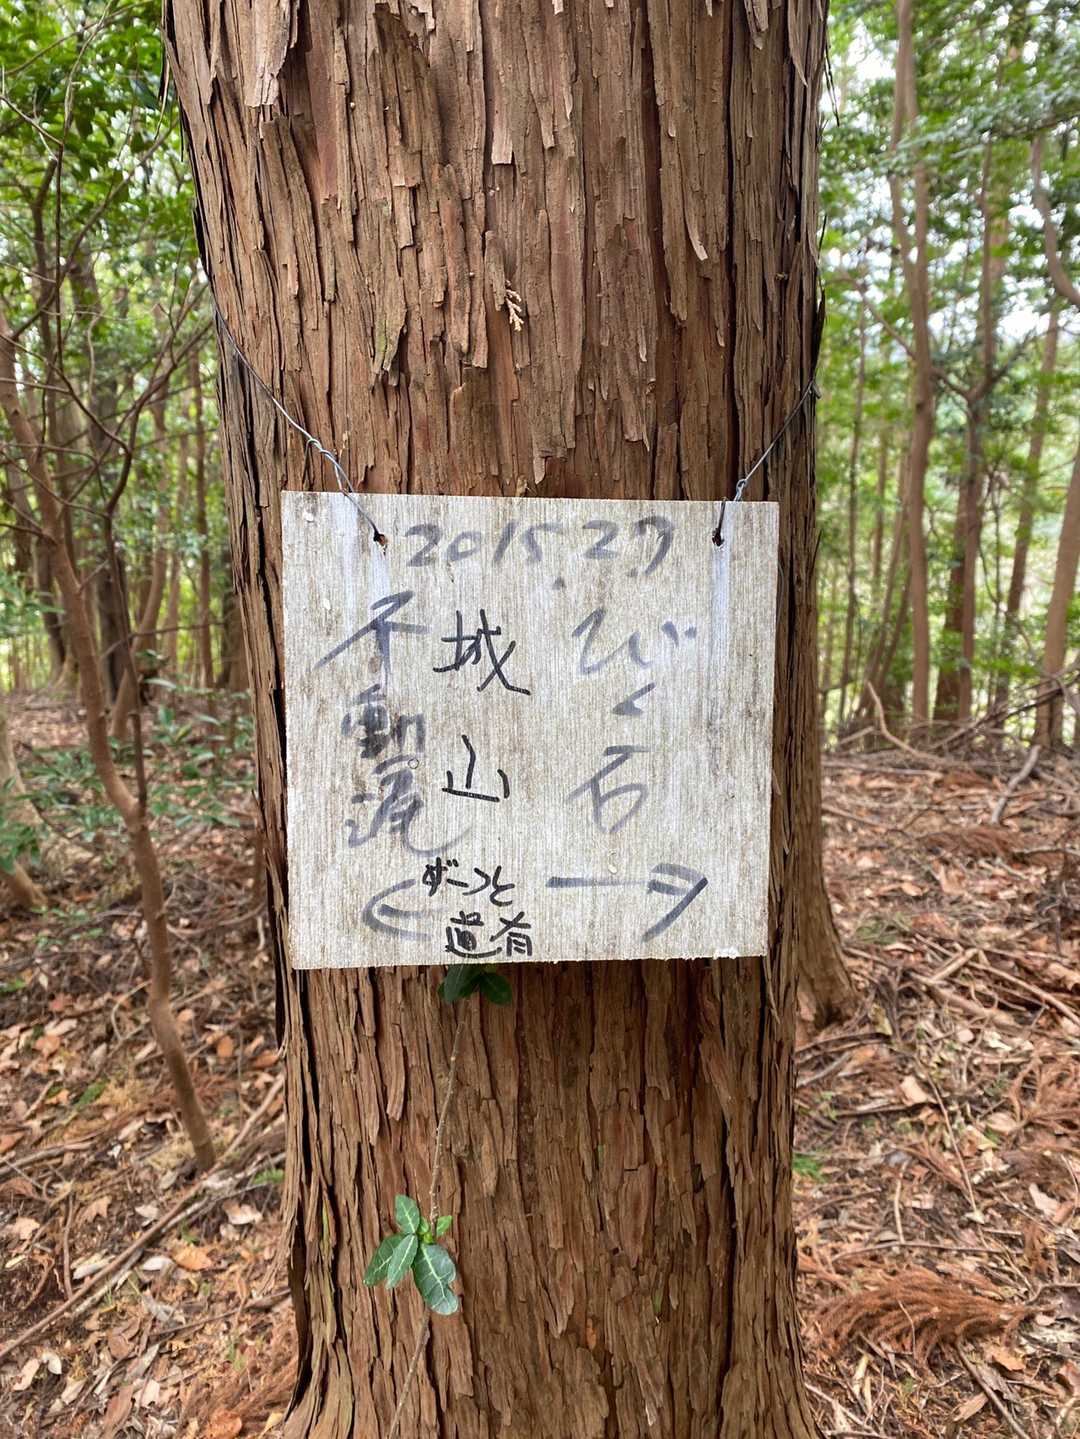 2015.2.7
びく石
→
城山
不動滝
←
ずーっと
道有